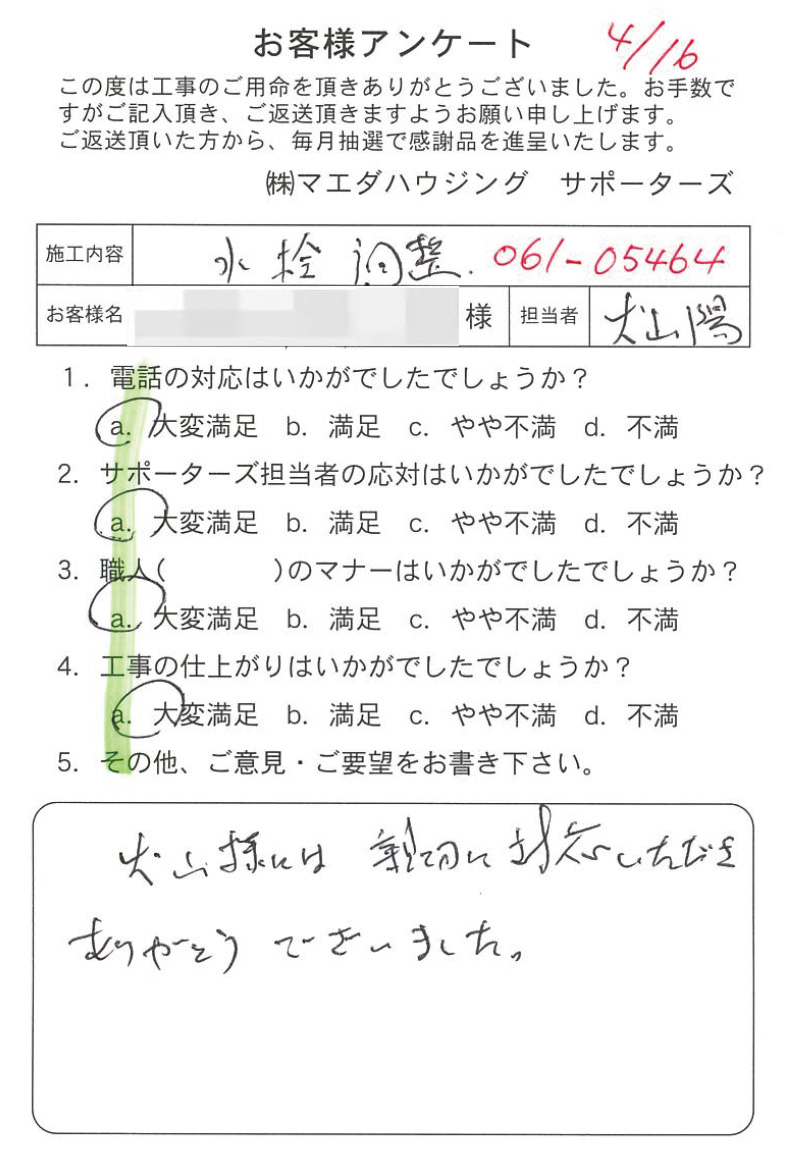 お客様アンケート 4/16
この度は工事のご用命を頂きありがとうございました。お手数で
すがご記入頂き、ご返送頂きますようお願い申し上げます。
ご返送頂いた方から、毎月抽選で感謝品を進呈いたします。
㈱マエダハウジング サポーターズ
施工内容 水栓調整. 061-05464
お客様名 様 担当者 犬山陽
1. 電話の対応はいかがでしたでしょうか?
a. 大変満足 b. 満足 c. やや不満 d. 不満
2. サポーターズ担当者の応対はいかがでしたでしょうか?
a. 大変満足 b. 満足 c. やや不満 d. 不満
3. 職人( )のマナーはいかがでしたでしょうか?
a. 大変満足 b. 満足 c. やや不満 d. 不満
4. 工事の仕上がりはいかがでしたでしょうか?
a. 大変満足 b. 満足 c. やや不満 d. 不満
5. その他、ご意見・ご要望をお書き下さい。
犬山様には親切に対応いただき
ありがとうございました。